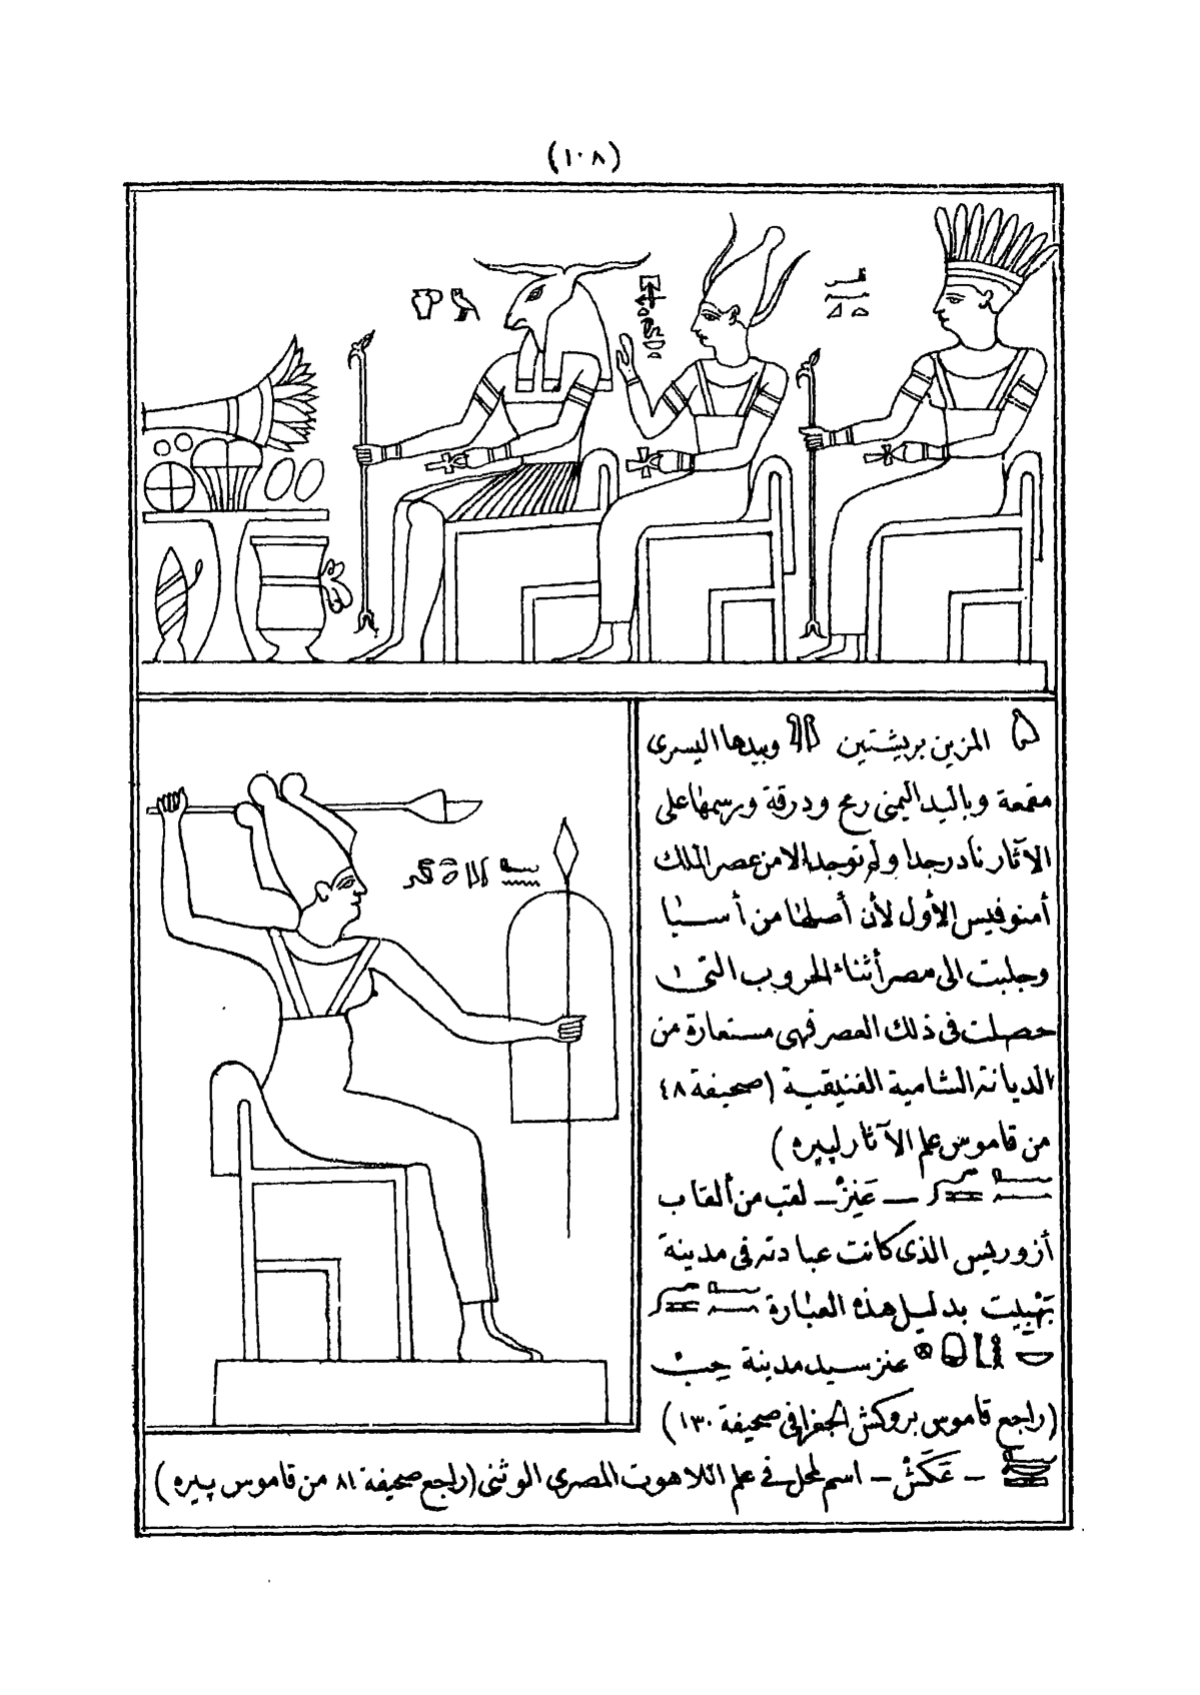 (١٠٨)
المزين بريشتين وبيدها اليسرى
مقمعة وباليد اليمنى رمح ودرقة ورسمها على
الآثار نادر جدا ولم توجد الا من عصر الملك
أمنوفيس الأول لأن أصلها من أسيا
وجلبت الى مصر أثناء الحروب التى
حصلت فى ذلك العصر فهى مستعارة من
الديانة الشامية الفنيقية (صحيفة ٤٨
من قاموس علم الآثار لپيره)
— عَنِزْ — لقب من ألقاب
أزوريس الذى كانت عبادته فى مدينة
بهبيت بدليل هذه العبارة
عنز سيد مدينة حِبْ
(راجع قاموس بروكش الجغرافى صحيفة ١٣٠)
— عَكَشْ — اسم لمحل فى علم اللاهوت المصرى الوثنى (راجع صحيفة ٨١ من قاموس پيره)